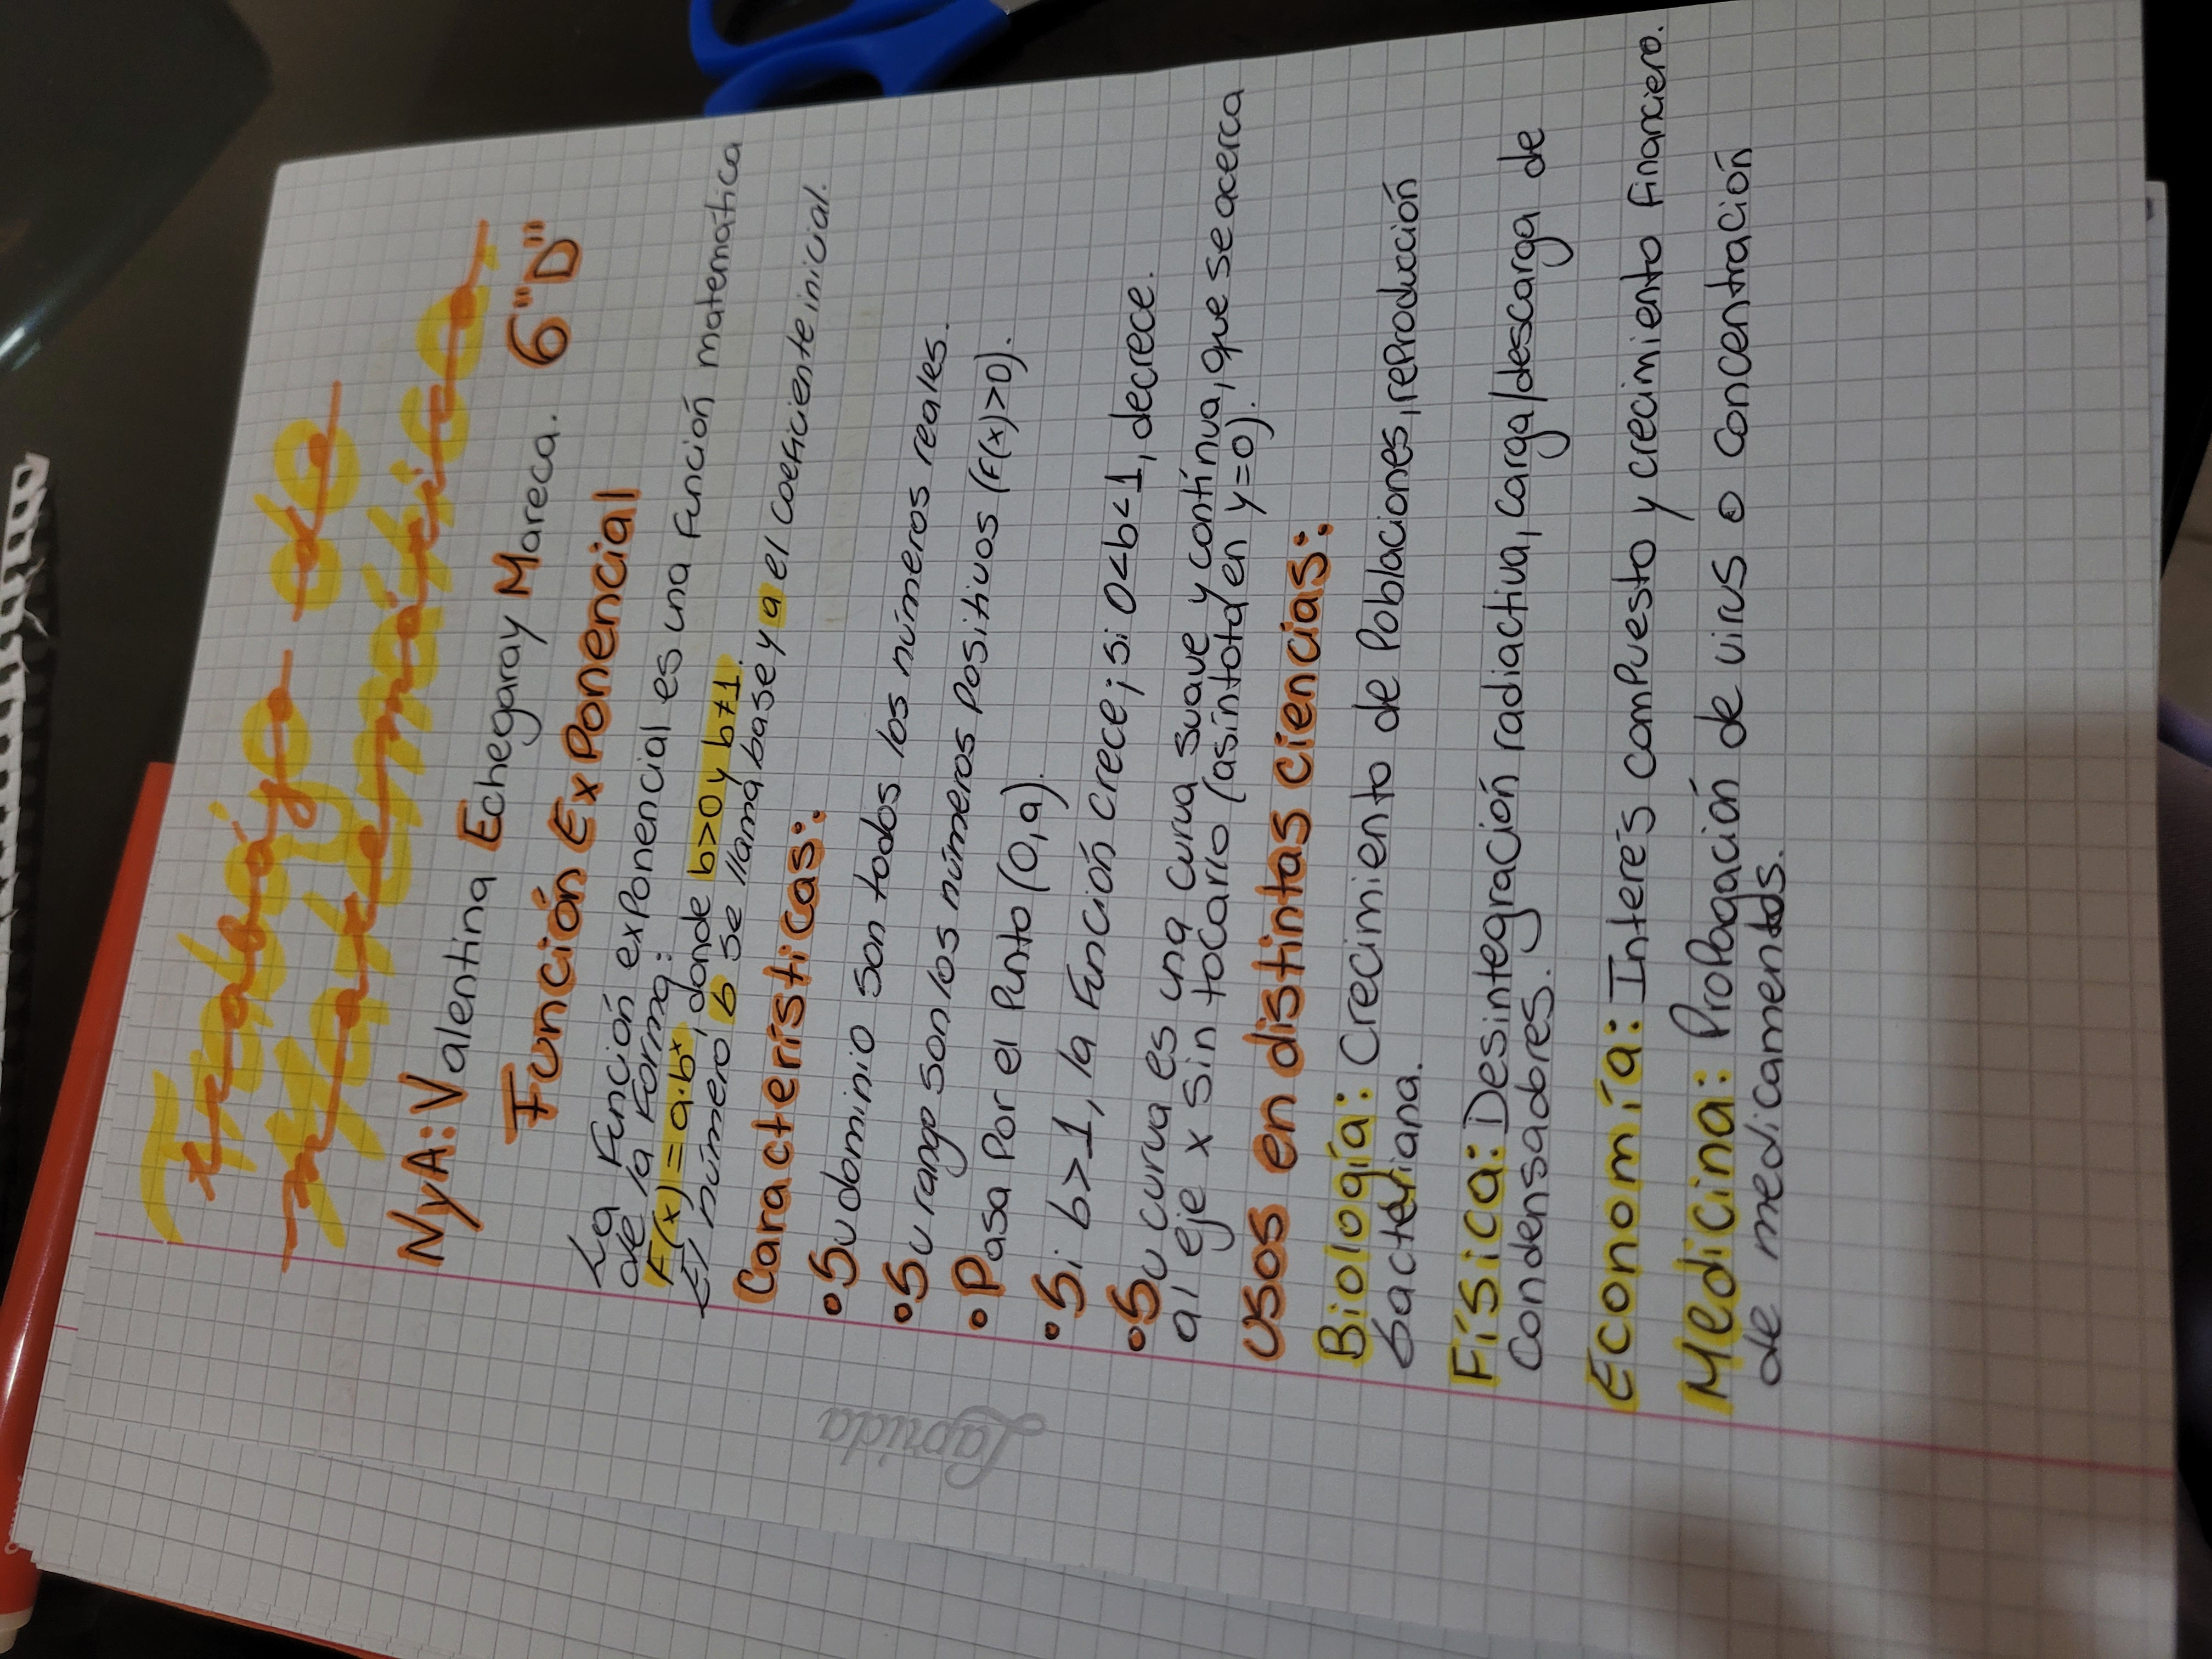 Trabajo de
matemática.
NyA: Valentina Echegaray Mareca. 6"D"
Función Exponencial
La Función exponencial es una Función matemática
de la Forma:
F(x) = a·bˣ, donde b>0 y b≠1.
El número b se llama base y a el coeficiente inicial.
Características:
•Su dominio son todos los números reales.
•Su rango son los números positivos (F(x)>0).
•Pasa por el Punto (0,a).
•Si b>1, la Función crece; si 0<b<1, decrece.
•Su curva es una curva suave y contínua, que se acerca
al eje x sin tocarlo (asíntota en y=0).
Usos en distintas ciencias:
Biología: Crecimiento de Poblaciones, reproducción
bacteriana.
Física: Desintegración radiactiva, carga/descarga de
condensadores.
Economía: Interés compuesto y crecimiento Financiero.
Medicina: Propagación de virus o concentración
de medicamentos.
Laprida